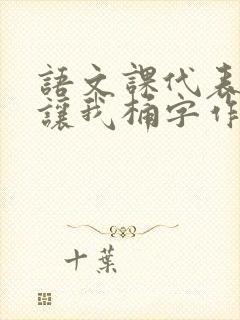 語文課代表
讓我桶字作
十葉